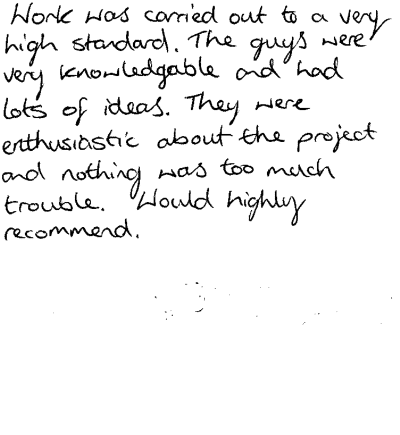 Work was carried out to a very
high standard. The guys were
very knowledgable and had
lots of ideas. They were
enthusiastic about the project
and nothing was too much
trouble. Would highly
recommend.